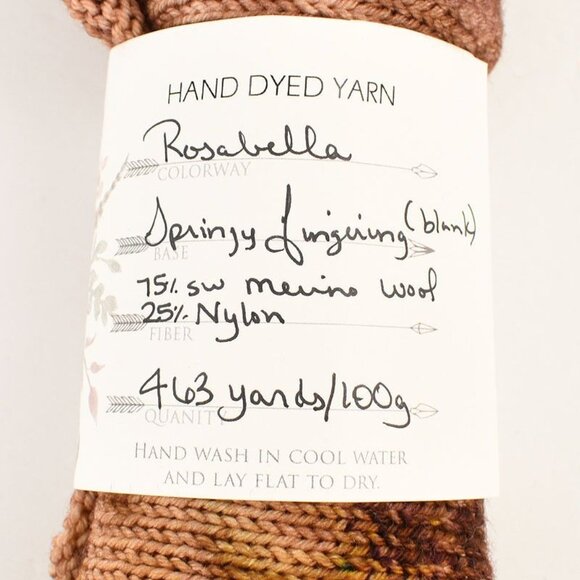 HAND DYED YARN
Rosabella
COLORWAY
Springy Fingering (blank)
BASE
75% SW merino wool
25% Nylon
FIBER
463 yards/100g
QUANITY
HAND WASH IN COOL WATER
AND LAY FLAT TO DRY.